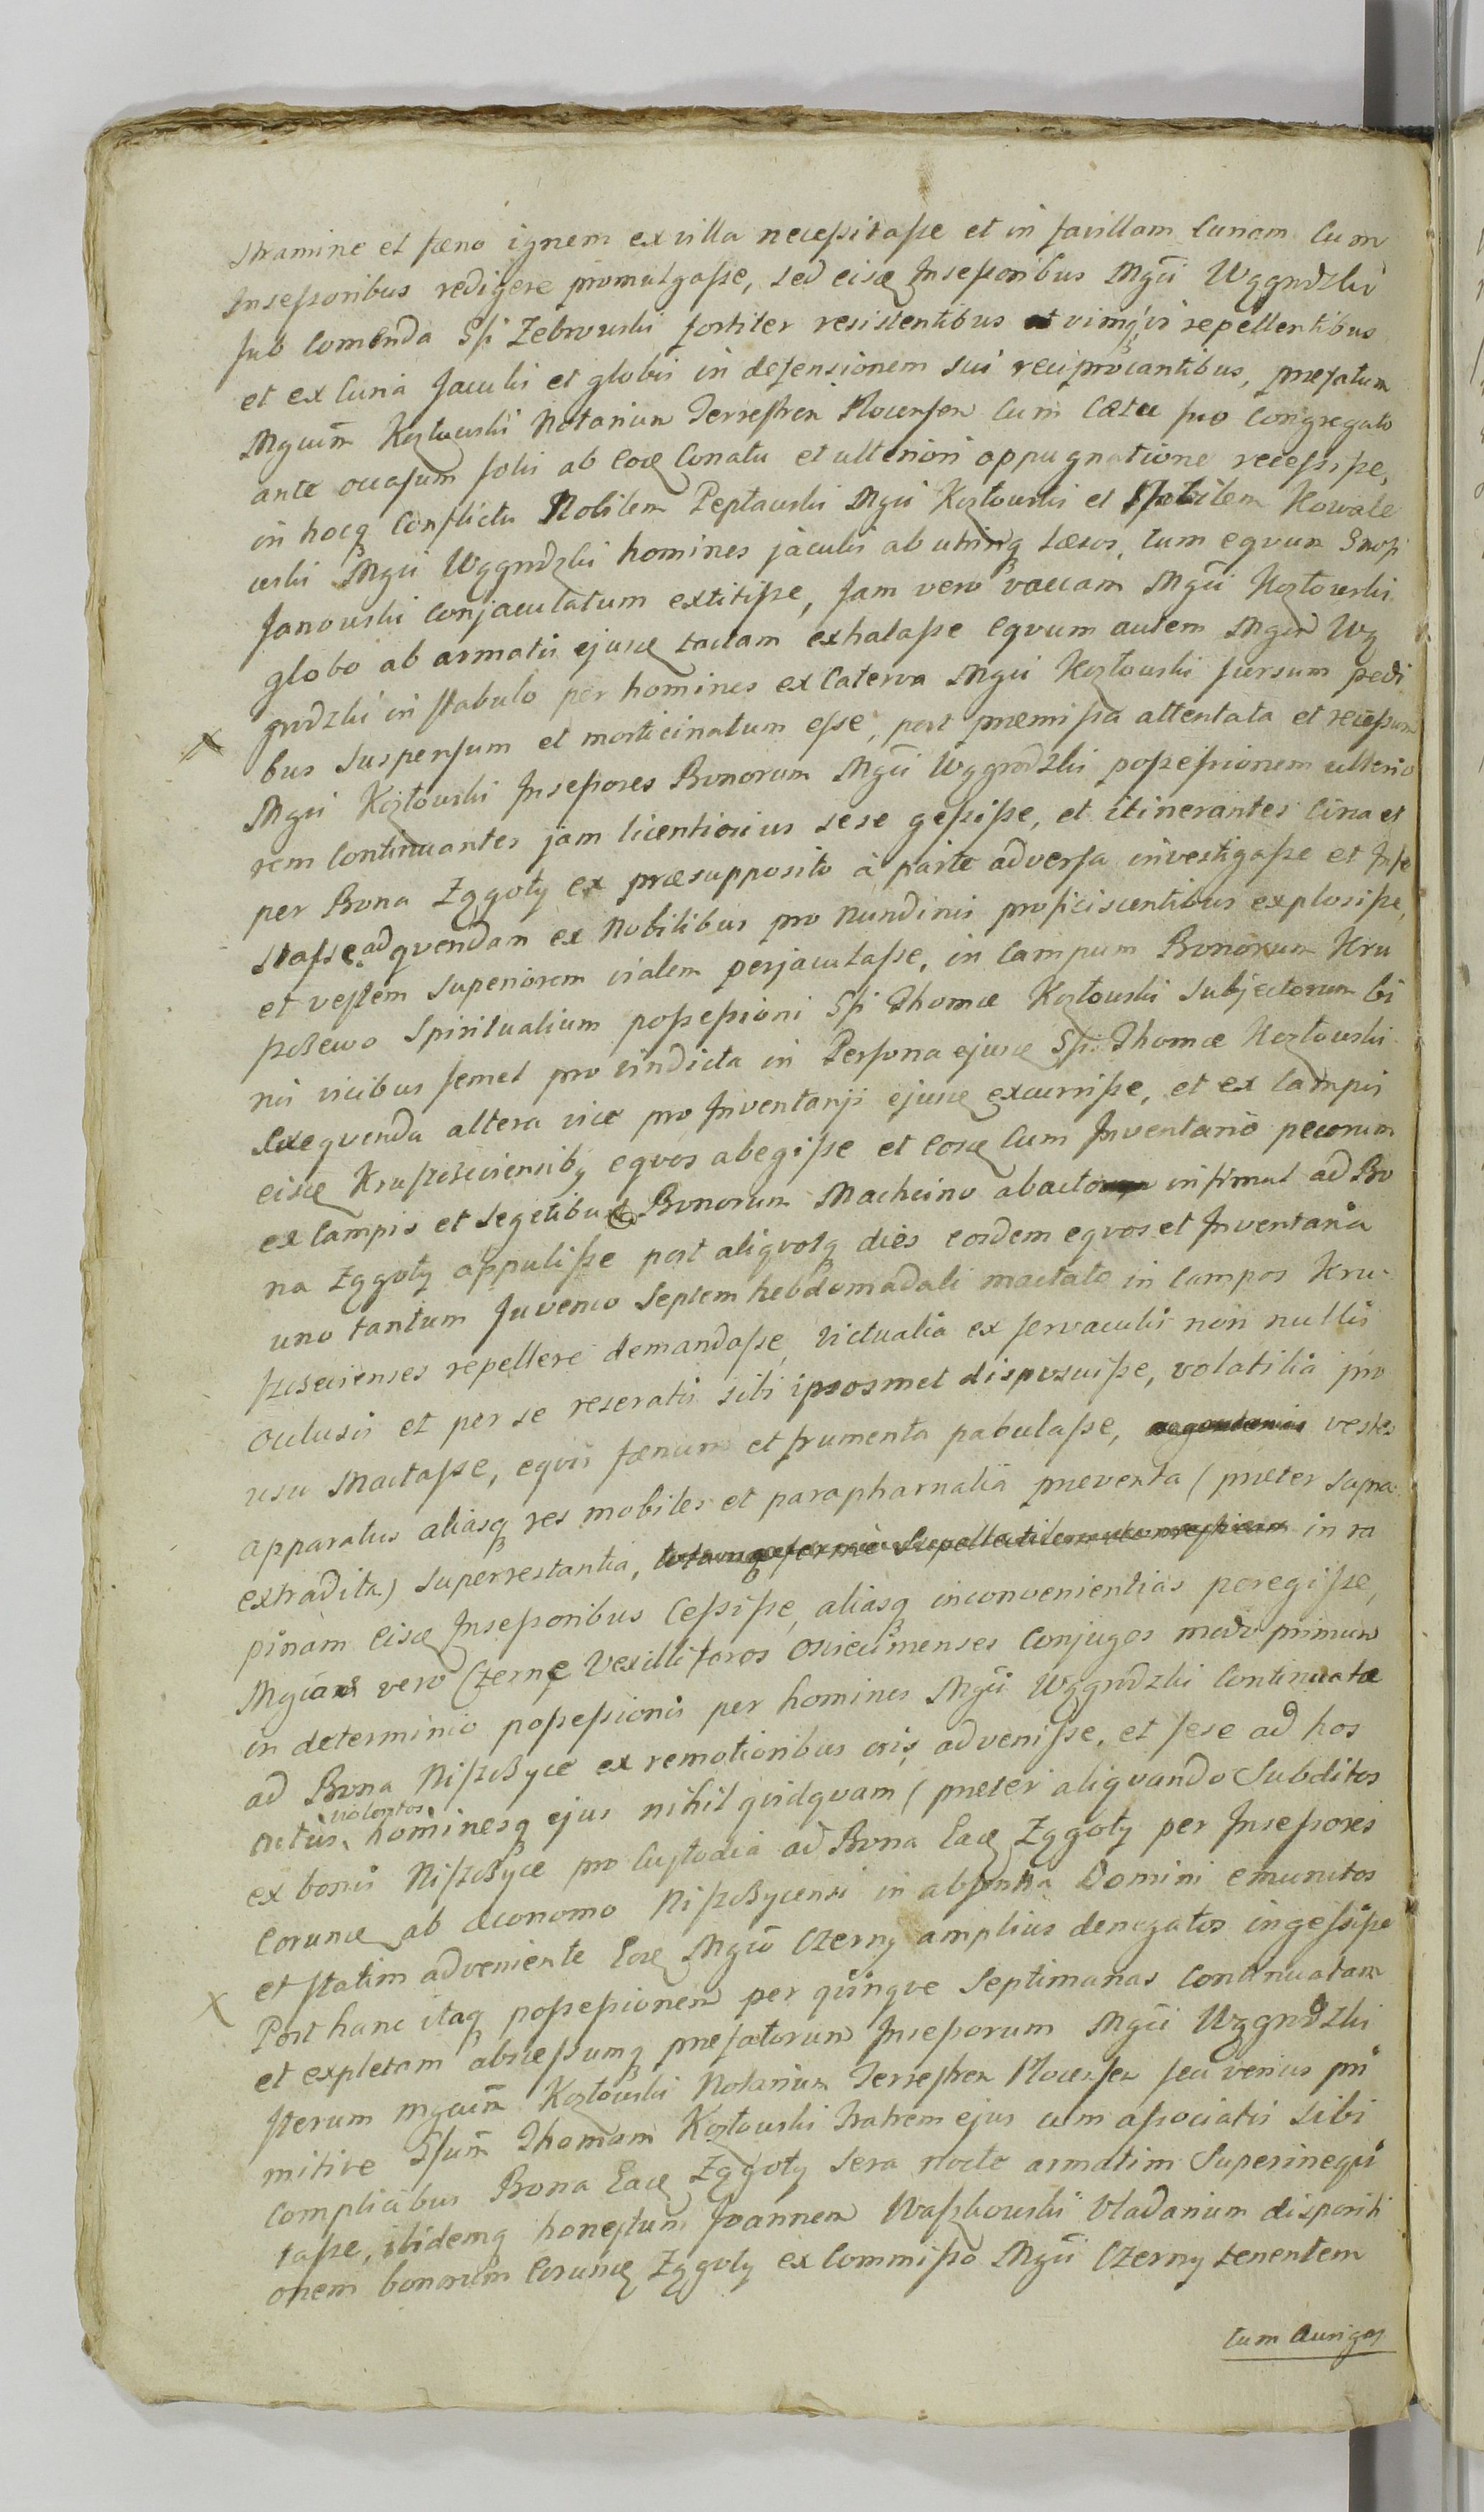 stramine et fæno ignem ex villa necessitasse et in favillam Curiam cum
Insessoribus redigere promulgasse, sed eisdem Insessoribus Mgci Wggrodzki
sub Comenda Gsi Zebrowski fortiter resistentibus et vimq̃ vi repellentibus
et ex Curia Jaculis et globis in defensionem sui reciprocantibus, præfatum
Mgcum̃ Kozłowski Notarium Terrestrem Plocensem cum Cætu suo Congregato
ante occasum solis ab Eoq̃ Conatu et ulteriori oppugnatione recessisse,
in hocq̃ Conflictu Nobilem Peptawski Mgci Kozłowski et Nobilem Kowale
wski Mgci Wggrodzki homines jaculis ab utrinq̃ læsos, tum eqvum Gnosi
Janowski conjaculatum extitisse, Jam vero vaccam Mgci Kozłowski
globo ab armatis ejusq̃ tactam exhalasse Eqvum autem Mgci Wg
grodzki in stabulo per homines ex Caterva Mgci Kozłowski sursum pedi
bus suspensum et morticinatum esse, post præmissa attentata et recessum
Mgci Kozłowski Insessores Bonorum Mgci Wggrodzki possessionem ulterio
rem Continuantes jam licentiosius sese gessisse, et itinerantes Circa et
per Bona Zggoty ex præsupposito à parte adversa investigasse et Infe
stasse ad qvendam ex Nobilibus pro nundinis proficiscentibus explosisse,
et vestem superiorem vialem perjaculasse, in Campum Bonorum Kru
szczewo Spiritualium possessioni Gsi Thomæ Kozłowski subjectorum bi
nis vicibus semel pro vindicta in Persona ejusq̃ Gsi Thomæ Kozłowski
Exeqvenda altera vice pro Inventarij ejusq̃ excurrisse, et ex Campis
eisq̃ Kruszczeviensiby eqvos abegisse et Eosq̃ cum Inventario pecorum
ex Campis et segetibus Bonorum Machcino abacto insimul ad Bo
na Zggoty appulisse post aliqvotq̃ dies eosdem eqvos et Inventaria
uno tantum Juvenco septem hebdomadali mactato in Campos Kru
szczevienses repellere demandasse, Victualia ex servaculis non nullis
occlusis et per se reseratis sibi ipsosmet disposuisse, volatilia pro
usu Mactasse, eqvis fænum et frumenta pabulasse, vestes
apparatus aliasq̃ res mobiles et parapharnalia præventa (præter supra
extradita) superrestantia, in ra
pinam Eisq̃ Insessoribus Cessisse, aliasq̃ inconvenientias peregisse,
Mgcos vero Czerny Vexilliferos Osviecimenses Conjuges modo primum
in determinio possessionis per homines Mgci Wggrodzki Continuatæ
ad Bona Niszczyce ex remotioribus oris advenisse, et sese ad hos
actus violentos hominesq̃ ejus nihil qvidqvam (præter aliqvando Subditos
ex bonis Niszczyce pro Custodia ad Bona Eaq̃ Zggoty per Insessores
Eorumq̃ ab œconomo Niszczycensi in absentia Domini emunitos
et statim adveniente Eoq̃ Mgco Czerny amplius denegatos ingessisse
Post hanc itaq̃ possessionem per qvinqve septimanas Continuatam
et expletam abscessumq̃ præfatorum Insessorum Mgci Wggrodzki
Iterum Mgcum̃ Kozłowski Notarium Terrestrem Plocensem seu verius pri
mitive Gsum̃ Thomam Kozłowski Fratrem ejus cum associatis sibi
Complicibus Bona Eaq̃ Zggoty sera nocte armatim superineqvi
tasse, ibidemq̃ honestum Joannem Waszkowski Vladarium dispositi
onem bonorum Eorumq̃ Zggoty ex Commisso Mgci Czerny tenentem
tum Aurigas